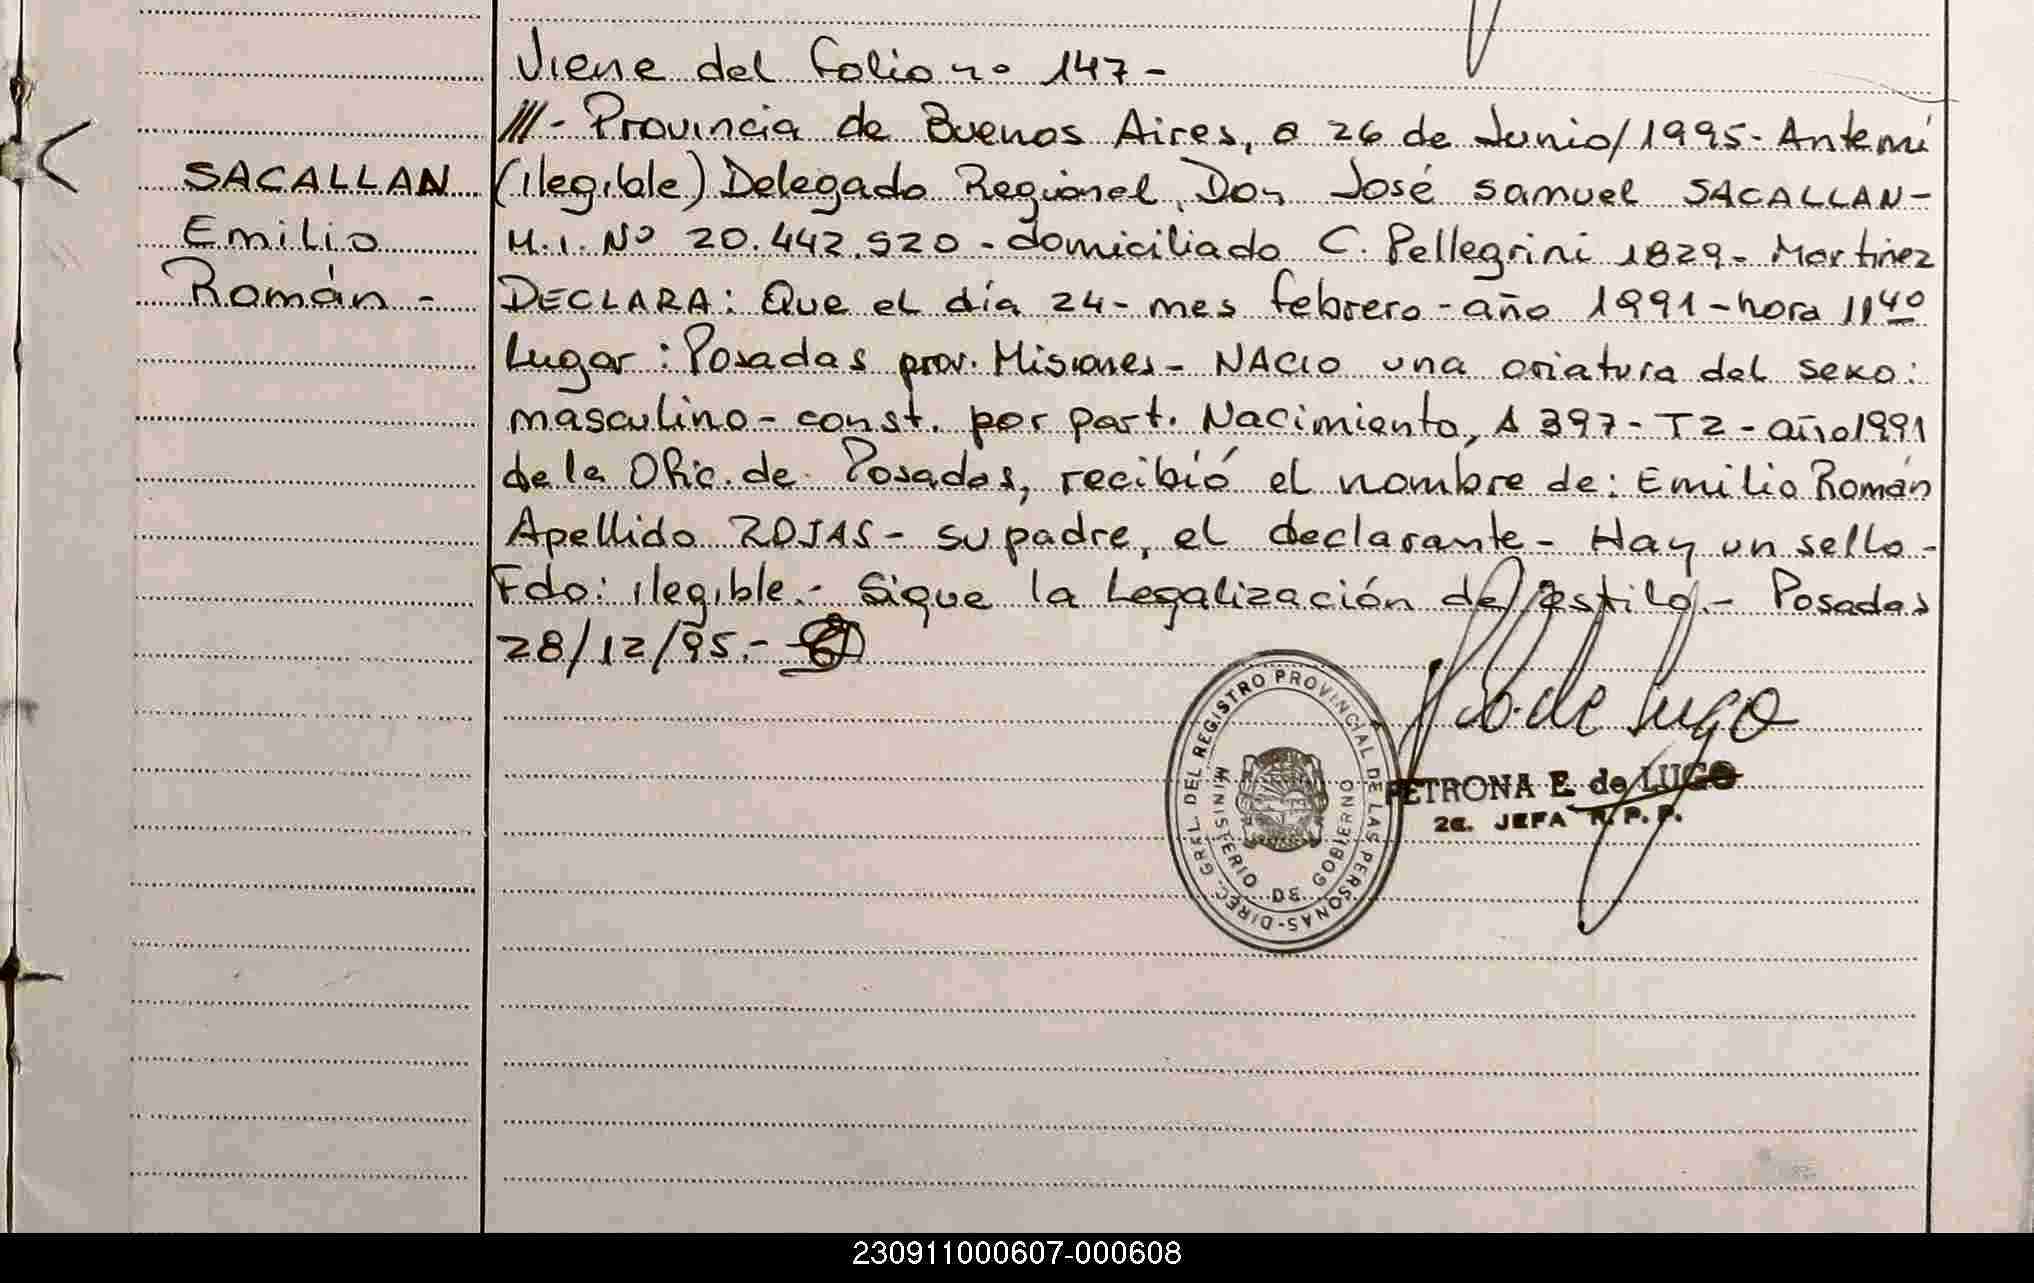 Viene del folio nº 147-
///- Provincia de Buenos Aires, a 26 de Junio/1995- Ante mí
SACALLAN
Emilio
Román -
(ilegible) Delegado Regional, Don José Samuel SACALLAN-
M.I. Nº 20.442.520 - domiciliado C. Pellegrini 1829- Martinez
DECLARA: Que el día 24- mes febrero - año 1991 - hora 11⁴⁰
Lugar: Posadas prov. Misiones- NACIO una criatura del sexo:
masculino - const. por part. Nacimiento, A 397- T2 - año 1991
de la Ofic. de Posadas, recibió el nombre de: Emilio Román
Apellido ROJAS- su padre, el declarante- Hay un sello-
Fdo: ilegible.- Sigue la Legalización de estilo.- Posadas
28/12/95.-
DIREC. GRAL. DEL REGISTRO PROVINCIAL DE LAS PERSONAS-
MINISTERIO DE GOBIERNO
de Lugo
PETRONA E. de LUGO
2a. JEFA R.P.P.
230911000607-000608